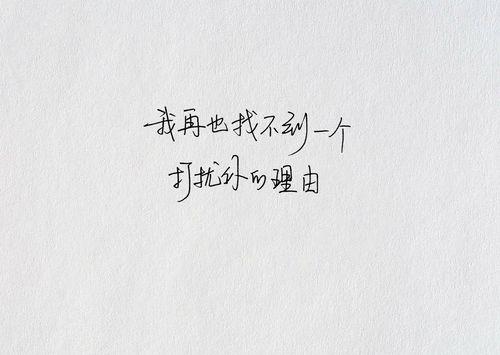 我再也找不到一个
打扰你的理由